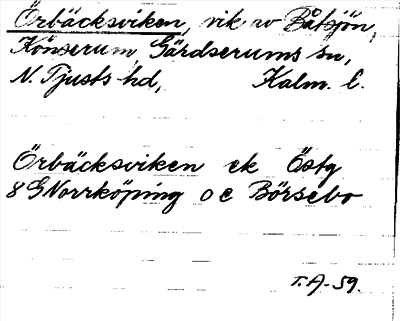 Örbäcksviken, vik av Båtsjön,
Könserum, Gärdserums sn,
N. Tjusts hd, Kalm. l.
Örbäcksviken ek Östg
8 G Norrköping o e Börsebo
T.A-59.